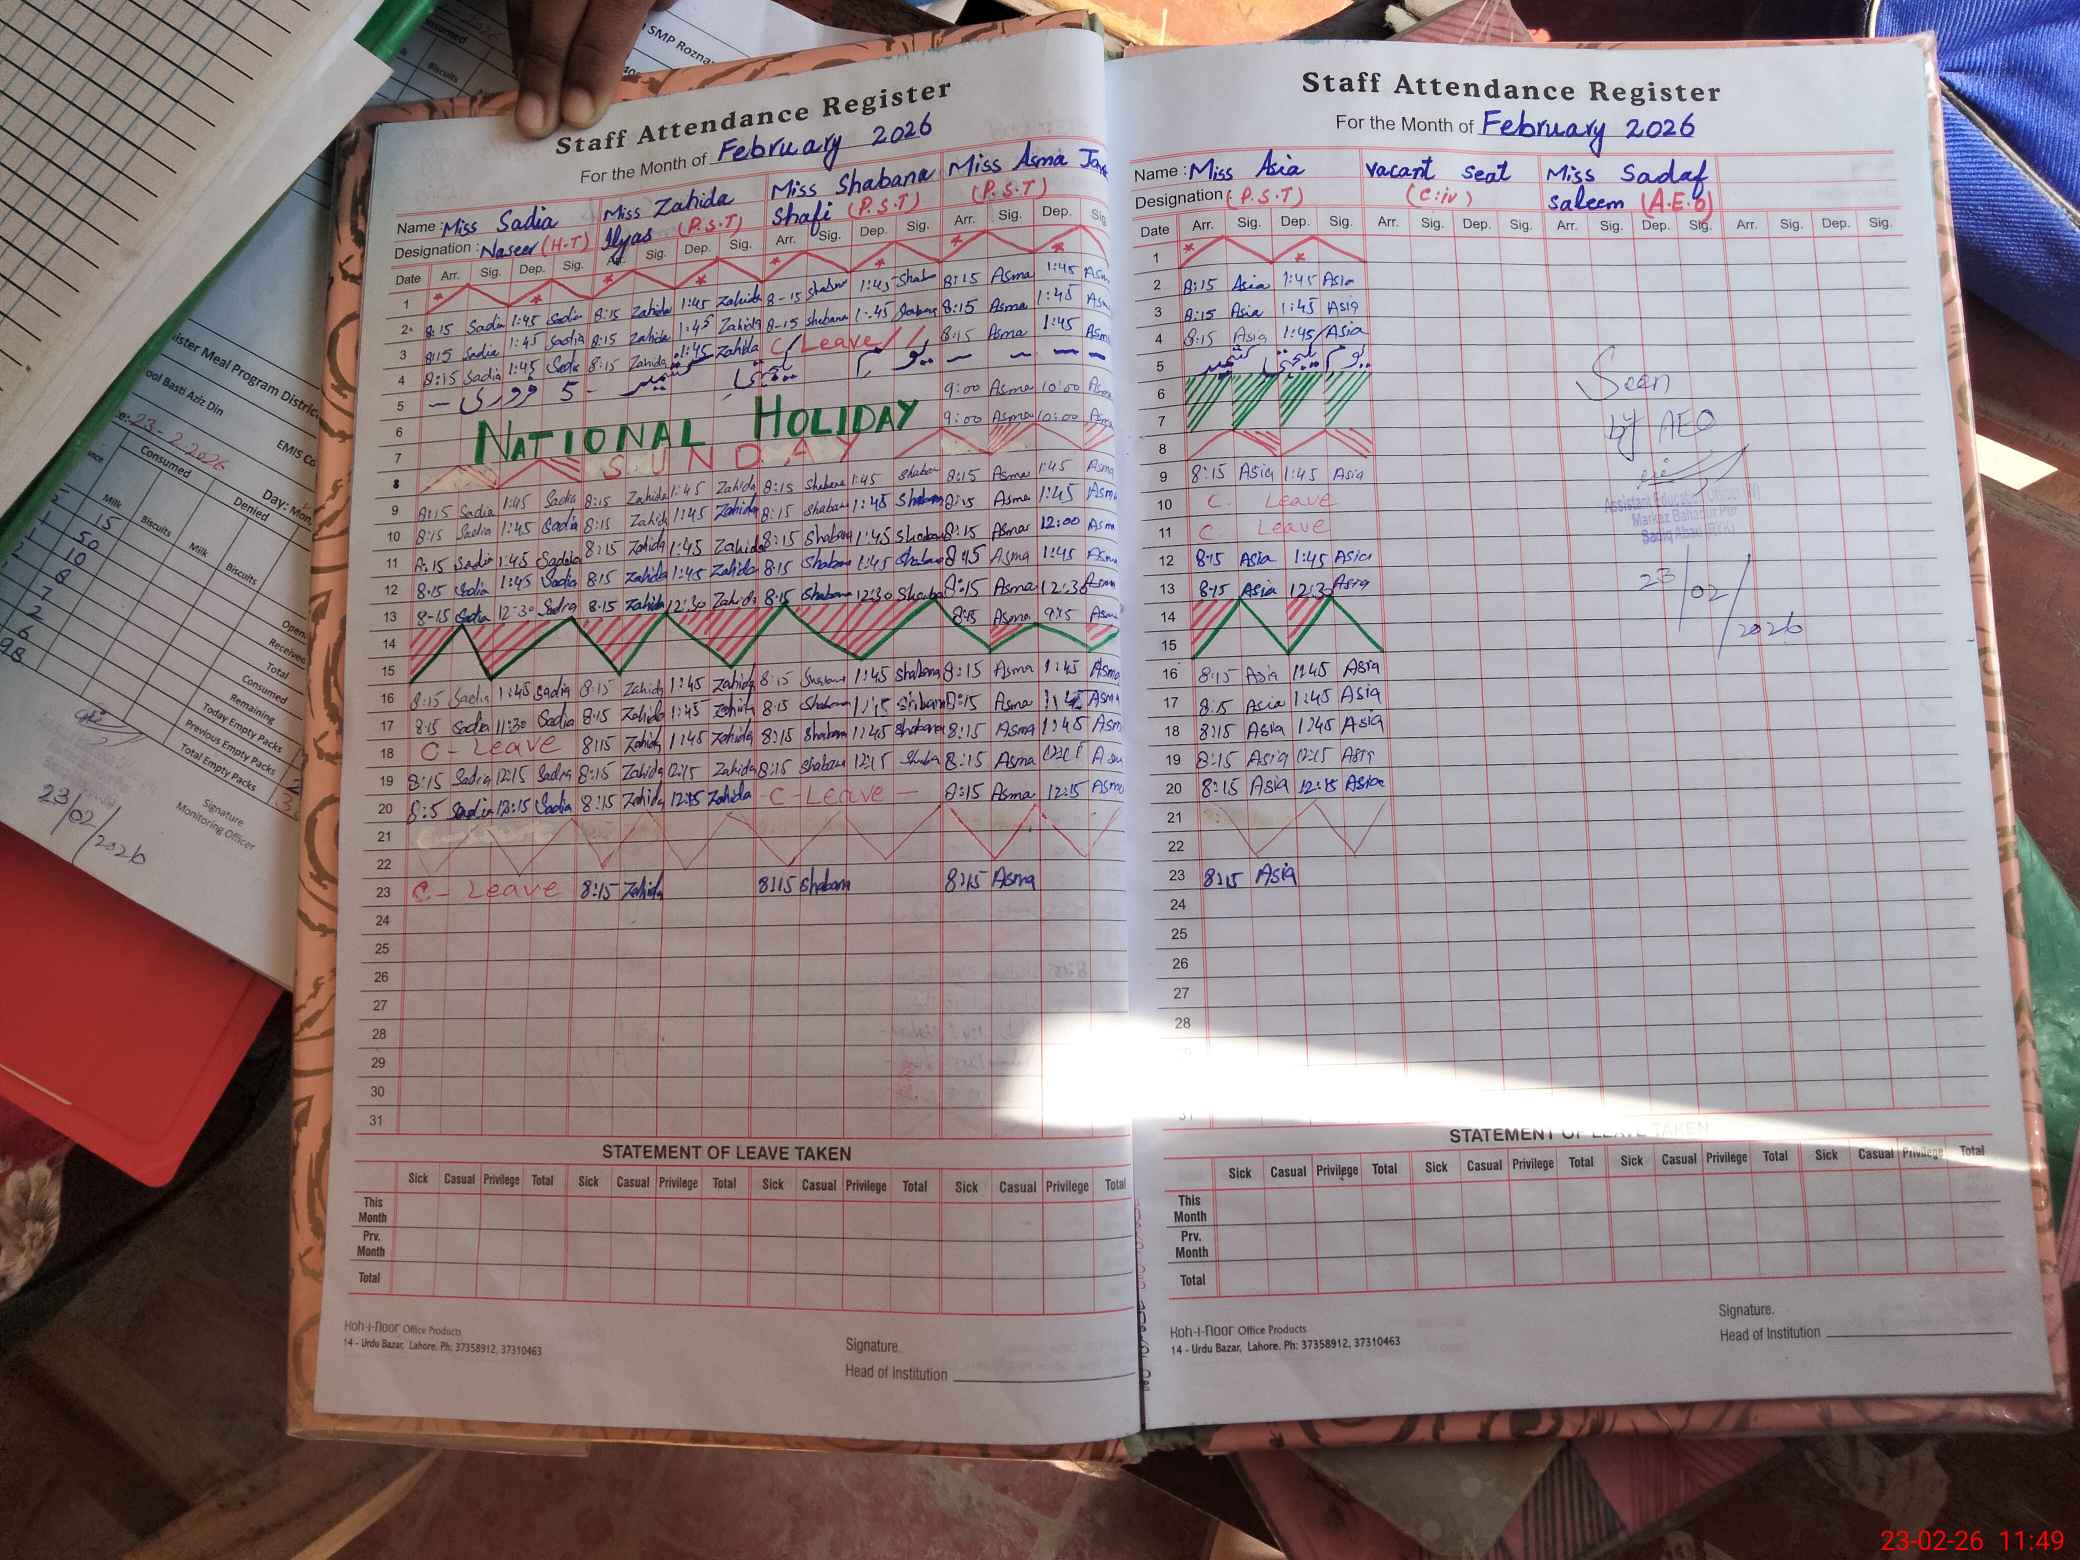 Staff Attendance Register
For the Month of February 2026
Name: Miss Sadia Miss Zahida Miss Shabana Miss Asma
Designation: Naseer (H-T) Ilyas (P.S.T) Shafi (P.S.T) (P.S.T)
Date Arr. Sig. Dep. Sig. Arr. Sig. Dep. Sig. Arr. Sig. Dep. Sig. Arr. Sig. Dep. Sig.
1
2 8:15 Sadia 1:45 Sadia 8:15 Zahida 1:45 Zahida 8-15 Shabana 1:45 Shab 8:15 Asma 1:45 Asm
3 8:15 Sadia 1:45 Sadia 8:15 Zahida 1:45 Zahida 8-15 Shabana 1:45 8:15 Asma 1:45 As
4 8:15 Sadia 1:45 Sadia 8:15 Zahida 1:45 Zahida C/Leave// 8:15 Asma 1:45 Asm
5 — 5 فروری - یوم یکجہتی کشمیر — — — —
6 NATIONAL HOLIDAY 9:00 Asma 10:00 Asm
7 9:00 Asma 10:00 Asm
8 SUNDAY
9 8:15 Sadia 1:45 Sadia 8:15 Zahida 1:45 Zahida 8:15 Shabana 1:45 Shaban 8:15 Asma 1:45 Asm
10 8:15 Sadia 1:45 Sadia 8:15 Zahida 1:45 Zahida 8:15 Shabana 1:45 Shabana 8:15 Asma 1:45 Asm
11 8:15 Sadia 1:45 Sadia 8:15 Zahida 1:45 Zahida 8:15 Shabana 1:45 Shabana 8:15 Asma 12:00 Asm
12 8:15 Sadia 1:45 Sadia 8:15 Zahida 1:45 Zahida 8:15 Shabana 1:45 Shabana 8:15 Asma 1:45 Asm
13 8-15 Sadia 12:30 Sadia 8:15 Zahida 12:30 Zahida 8:15 Shabana 12:30 Shabana 8:15 Asma 12:30 Asma
14 8:15 Asma 9:15 Asm
15
16 8:15 Sadia 1:45 Sadia 8:15 Zahida 1:45 Zahida 8:15 Shabana 1:45 Shabana 8:15 Asma 1:45 Asma
17 8:15 Sadia 11:30 Sadia 8:15 Zahida 1:45 Zahida 8:15 Shabana Shabana 8:15 Asma 1:45 Asma
18 C - Leave 8:15 Zahida 1:45 Zahida 8:15 Shabana 1:45 Shabana 8:15 Asma 1:45 Asm
19 8:15 Sadia 12:15 Sadia 8:15 Zahida 12:15 Zahida 8:15 Shabana 12:15 Shaba 8:15 Asma Asm
20 8:5 Sadia 12:15 Sadia 8:15 Zahida 12:15 Zahida - C - Leave - 8:15 Asma 12:15 Asma
21
22
23 C - Leave 8:15 Zahida 8:15 Shabana 8:15 Asma
24
25
26
27
28
29
30
31
STATEMENT OF LEAVE TAKEN
Sick Casual Privilege Total Sick Casual Privilege Total Sick Casual Privilege Total Sick Casual Privilege Total
This Month
Prv. Month
Total
Koh-i-noor Office Products
14 - Urdu Bazar, Lahore. Ph: 37358912, 37310463
Signature.
Head of Institution
Staff Attendance Register
For the Month of February 2026
Name: Miss Asia vacant seat Miss Sadaf
Designation: (P.S.T) (C:iv) Saleem (A.E.O)
Date Arr. Sig. Dep. Sig. Arr. Sig. Dep. Sig. Arr. Sig. Dep. Sig. Arr. Sig. Dep. Sig.
1
2 8:15 Asia 1:45 Asia
3 8:15 Asia 1:45 Asia
4 8:15 Asia 1:45 Asia
5 یوم یکجہتی کشمیر
6
7
8
9 8:15 Asia 1:45 Asia
10 C. Leave
11 C. Leave
12 8:15 Asia 1:45 Asia
13 8:15 Asia 12:30 Asia
14
15
16 8:15 Asia 1:45 Asia
17 8:15 Asia 1:45 Asia
18 8:15 Asia 1:45 Asia
19 8:15 Asia 12:15 Asia
20 8:15 Asia 12:15 Asia
21
22
23 8:15 Asia
24
25
26
27
28
31
Seen
by AEO
Assistant Education Officer (W)
Markaz Bahadur Pur
Sadiq Abad (RYK)
23/02/2026
STATEMENT OF LEAVE TAKEN
Sick Casual Privilege Total Sick Casual Privilege Total Sick Casual Privilege Total Sick Casual Privilege Total
This Month
Prv. Month
Total
Koh-i-noor Office Products
14 - Urdu Bazar, Lahore. Ph: 37358912, 37310463
Signature.
Head of Institution
SMP
Biscuits
Meal Program
Basti Aziz Din
EMIS
23-2-2026
Day: Mon
Consumed Denied
Milk Biscuits Milk Biscuits
15
50
10
8
7
2
6
98
Open
Received
Total
Consumed
Remaining
Today Empty Packs
Previous Empty Packs
Total Empty Packs
Signature
Monitoring Officer
23/02/2026
23-02-26 11:49